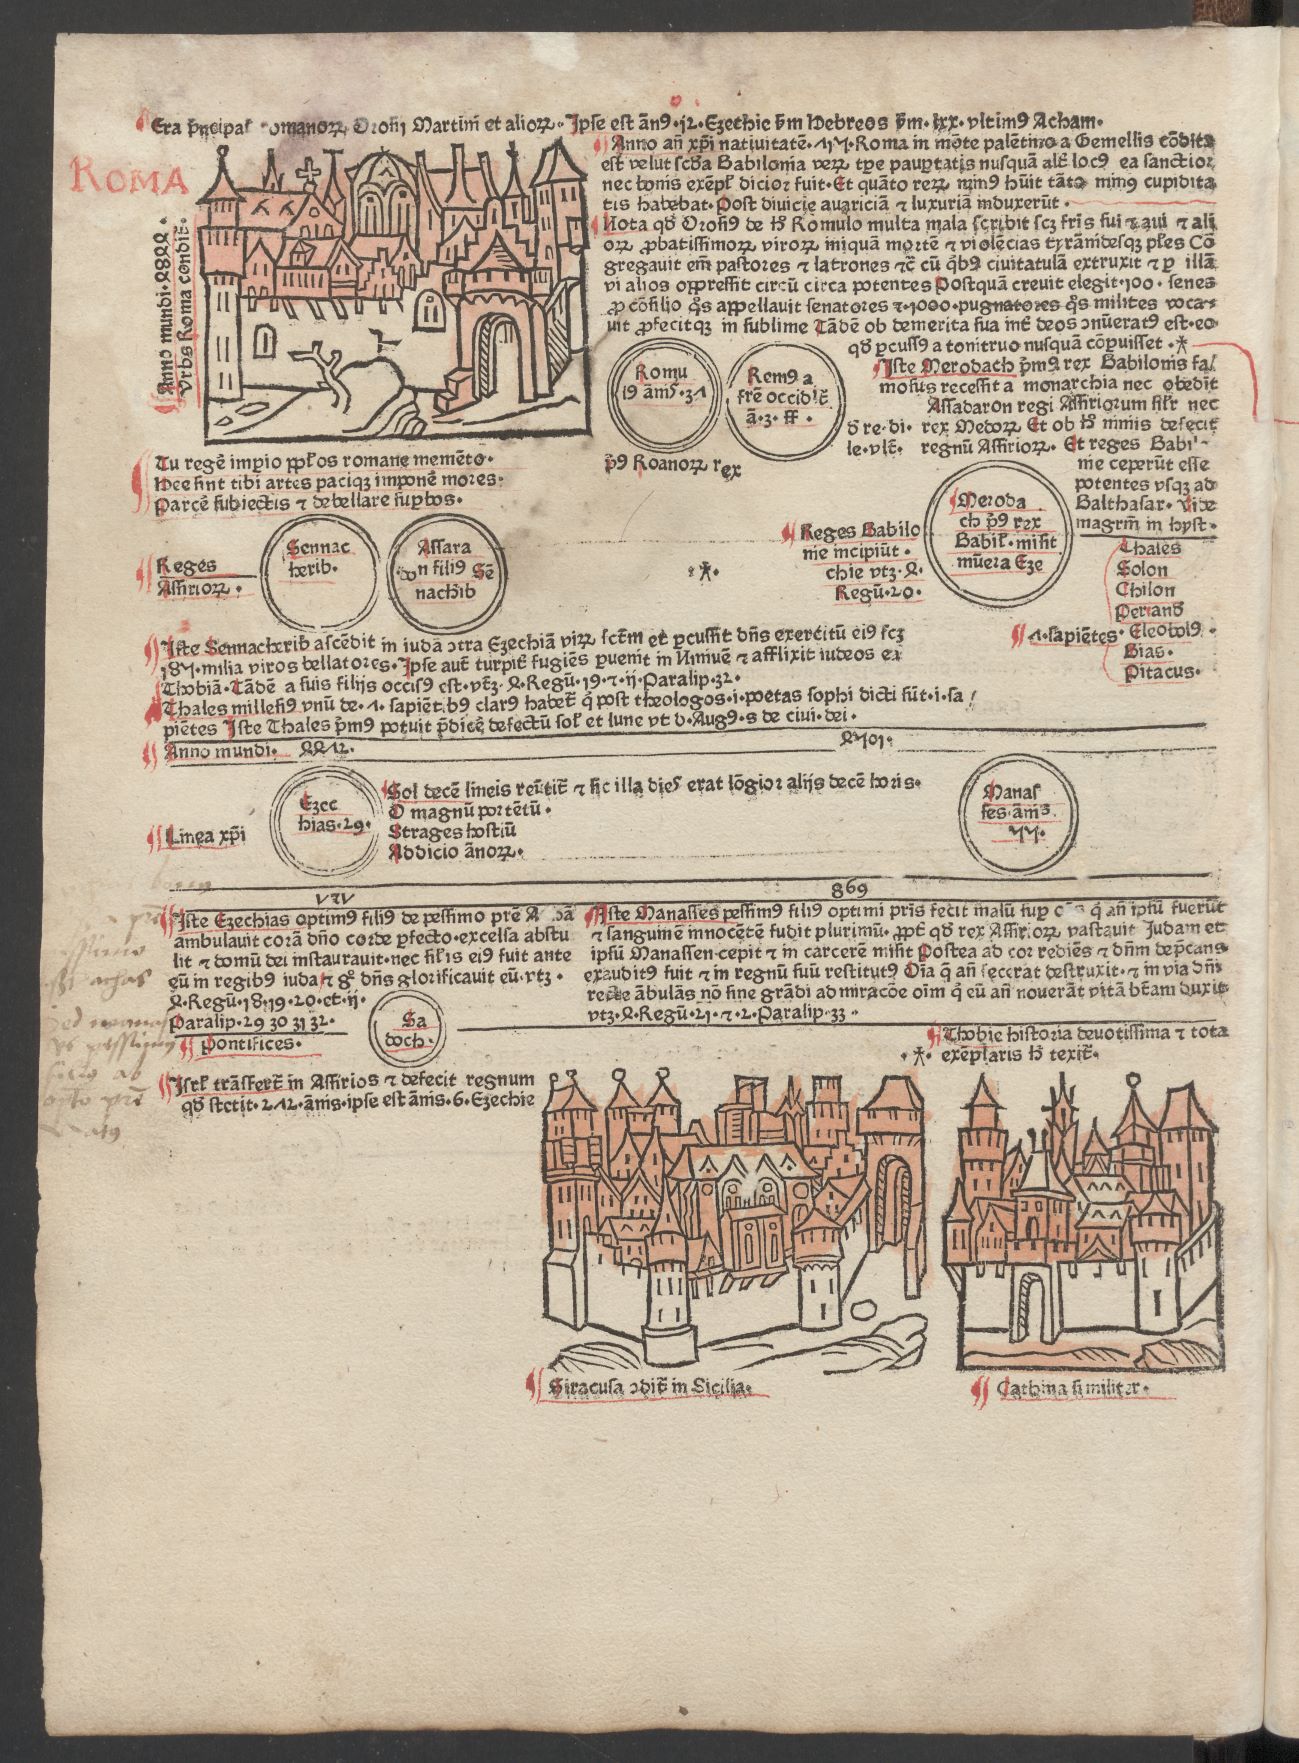 Era p̄ncipaƚ omanoꝝ Orosij Martini et alioꝝ· Ipse est ān9·12·Ezechie ẜm Hebreos ẜm·lxx·vltim9 Acham·
ROMA
Anno mundi·4844·
Vrbs Roma condit̄·
Anno an̄ xp̄i natiuitatē·717·Roma in mōte palētino a Gemellis cōdita
est velut scd̄a Babilonia veꝝ tpe paup̄tatis nusquā alt̄ loc9 ea sanctior
nec bonis exēpƚ dicior fuit·Et quāto reꝝ min9 hūit tāto min9 cupidita
tis habebat·Post diuicie auariciā ⁊ luxuriā induxerūt·
Nota qd̄ Orosi9 de hō Romulo multa mala scribit scꝫ fr̄is sui ⁊ aui ⁊ ali
oꝝ ꝓbatissimoꝝ viroꝝ iniquā mortē ⁊ violēcias tyrānidesqꝫ pl̄es Cō
gregauit em̄ pastores ⁊ latrones ⁊c̄ cū q̄b9 ciuitatulā extruxit ⁊ ꝑ illā
vi alios oppressit circū circa potentes Postquā creuit elegit·100·senes
ꝓ cōsilio q̄s appellauit senatores ⁊·1000·pugnatores q̄s milites voca-
uit ꝓfecitqꝫ in sublime Tādē ob demerita sua int̄ deos ɔnūerat9 est·eo
qd̄ ꝑcuss9 a tonitruo nusquā cōpuisset·
Romu
l9 ānis·37
Rem9 a
fr̄e occidit̄
ā·3·ff·
p̄9 Roanoꝝ rex
Iste Merodach p̄m9 rex Babilonis fa/
mosus recessit a monarchia nec obedit
Assadaron regi Assirioꝝum silr nec
rex Medoꝝ Et ob hō nimis defecit
regnū Assirioꝝ·Et reges Babi
nie ceperūt esse
potentes vsqꝫ ad
Balthasar·Vide
magrm̄ in hyst·
Tu regē imp̄io ppƚos romane memēto·
Hee sint tibi artes paciqꝫ imponē mores·
Parcē subiectis ⁊ debellare sup̄bos·
Reges
Assirioꝝ·
Sennac
herib·
Assara
don fili9 Sē
nachib
Reges Babilo
nie incipiūt·
chie vtꝫ·4·
Regū·20·
Meroda
ch p̄9 rex
Babiƚ·misit
mūera Eze
Thales
Solon
Chilon
Periand̄
7·sapiētes· Cleobul9·
Bias·
Pitacus·
Iste Sennacherib ascēdit in iudā ɔtra Ezechiā viꝝ sctm̄ et ꝑcussit dn̄s exercitū ei9 scꝫ
187·milia viros bellatores·Ipse aut̄ turpit̄ fugiēs ꝑuenit in Niniuē ⁊ afflixit iudeos ex
Thobiā·Tādē a suis filijs occis9 est·vtꝫ·4·Regū·19·⁊·ij·Paralip·32·
Thales millesi9 vnū de·7·sapiēt̄ib9 clar9 habet̄ q̄ post theologos·i·poetas sophi dicti sūt·i·sa/
piētes Iste Thales p̄m9 potuit p̄dicē defectū soƚ et lune vt d·Aug9·8 de ciui·dei·
Anno mundi· 4412·
4701·
Linea xp̄i
Ezec
hias·29·
Sol decē lineis reūtit̄ ⁊ sic illa dies erat lōgior alijs decē horis·
O magnū portētū·
Strages hostiū
Addicio ānoꝝ·
Manas
ses·ānis
77·
869
Iste Ezechias optim9 fili9 de pessimo pr̄e
ambulauit corā dn̄o corde ꝑfecto·excelsa abstu
lit ⁊ domū dei instaurauit·nec silis ei9 fuit ante
eū in regib9 iuda ⁊ g̊ dn̄s glorificauit eū·vtꝫ·
4·Regū·18·19·20·et·ij·
Paralip·29 30 31 32·
Iste Manasses pessim9 fili9 optimi pr̄is fecit malū suꝑ oēs q̄ an̄ ipsū fuerūt
⁊ sanguinē innocētē fudit plurimū·ꝓpt̄ qd̄ rex Assirioꝝ vastauit Iudam et
ipsū Manassen·cepit ⁊ in carcerē misit Postea ad cor rediēs ⁊ dn̄m dep̄cans
exaudit9 fuit ⁊ in regnū suū restitut9 Oīa q̄ an̄ fecerat destruxit·⁊ in via dn̄i
recte ābulās nō sine grādi admiracōe oīm q̄ eū an̄ nouerāt vitā bt̄am duxit
vtꝫ·4·Regū·21·⁊·2·Paralip·33·
Pontifices·
Sa
doch·
Thobie historia deuotissima ⁊ tota
exēplaris hō texit̄·
Isrƚ trāsfert̄ in Assirios ⁊ defecit regnum
qd̄ stetit·212·ānis·ipse est ānis·6·Ezechie
Siracusa ɔdit̄ in Sicilia·
Cathina similiter·